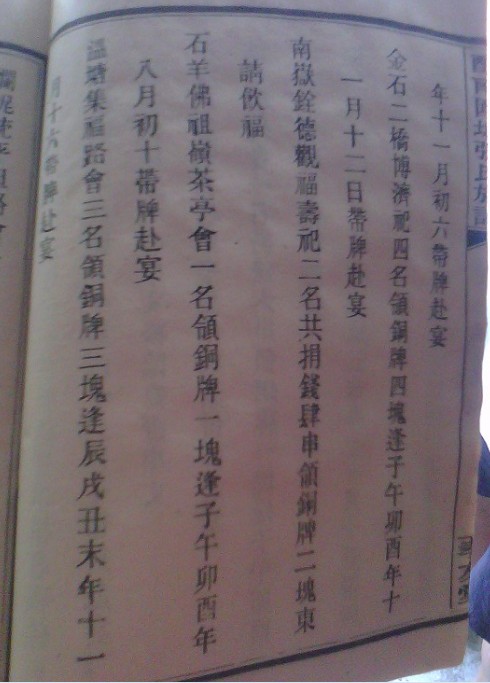 年十一月初六帶牌赴宴
金石二橋博濟祀四名領銅牌四塊逢子午卯酉年十
一月十二日帶牌赴宴
南嶽銓德觀福壽祀二名共捐錢肆串領銅牌二塊東
請飲福
石羊佛祖嶺茶亭會一名領銅牌一塊逢子午卯酉年
八月初十帶牌赴宴
溫塘集福路會三名領銅牌三塊逢辰戌丑未年十一
月十六帶牌赴宴